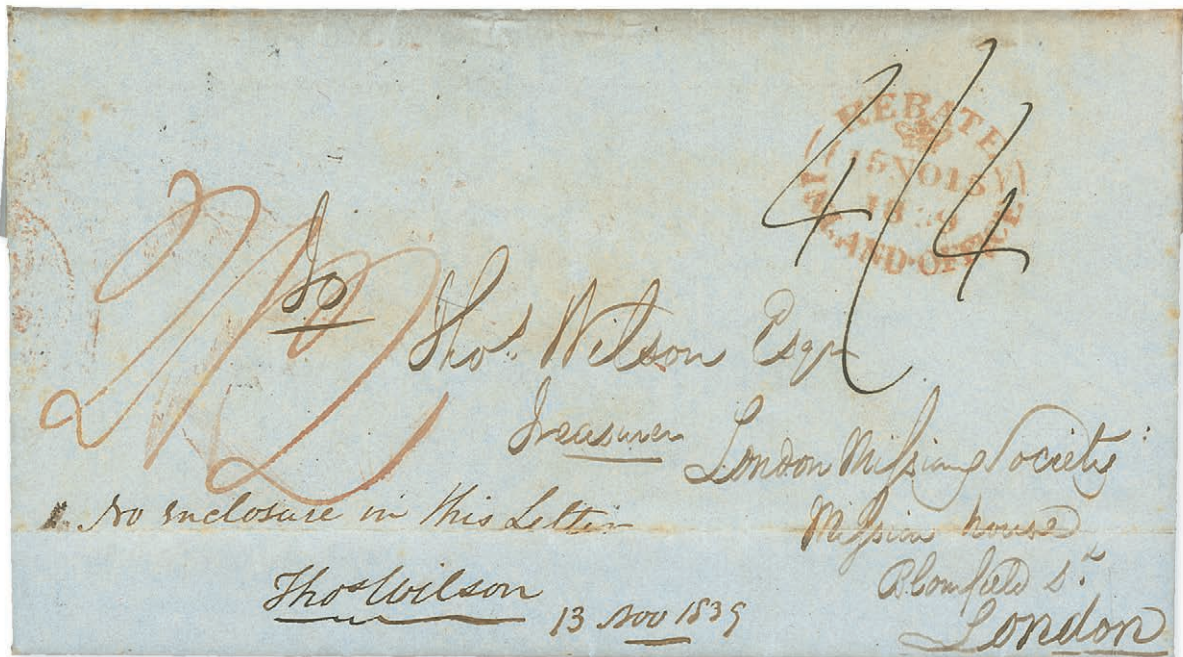 4/4
REBATED
15NO15
1839
INLAND·OFFICE
To
Thos. Wilson Esqr
Treasurer
London Missiong Society
Mission house
Blomfield St.
London
No enclosure in this Letter
Thos Wilson
13 Nov 1839